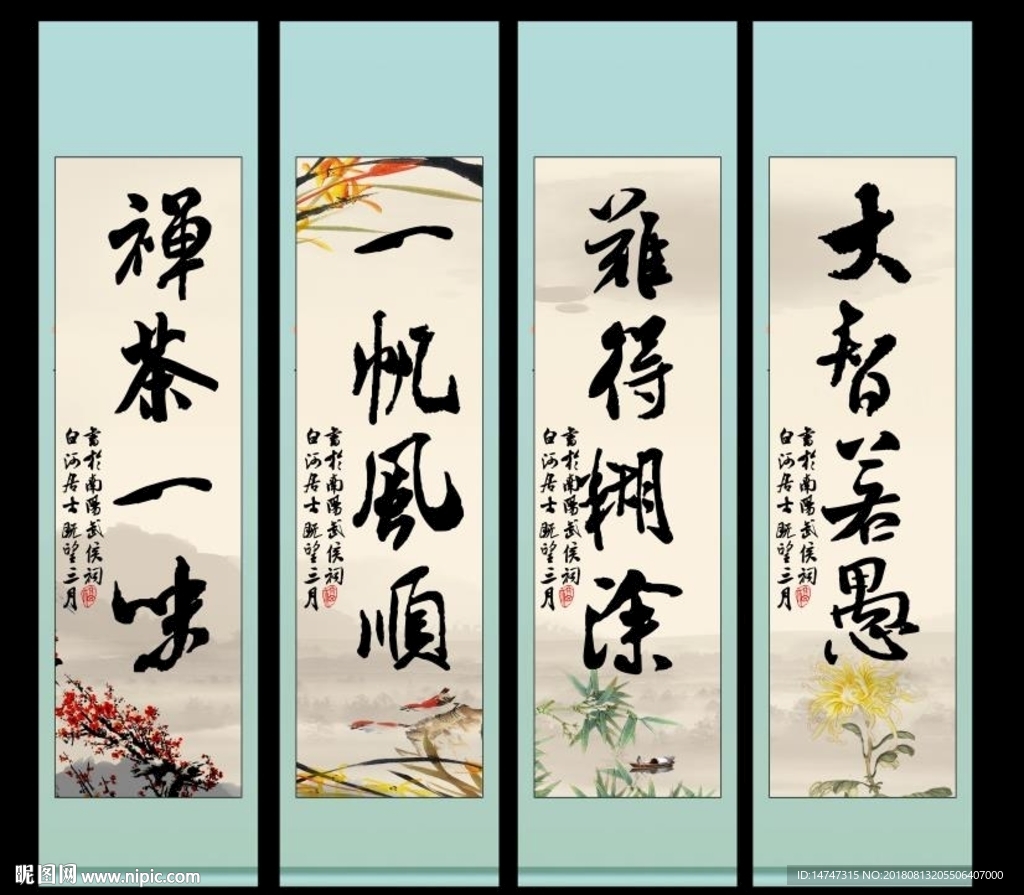 大智若愚
書於南陽武侯祠
白河居士 三月
難得糊涂
書於南陽武侯祠
白河居士 三月
一帆風順
書於南陽武侯祠
白河居士 三月
禅茶一味
書於南陽武侯祠
白河居士 三月
昵图网 www.nipic.com
ID:14747315 NO:20180813205506407000